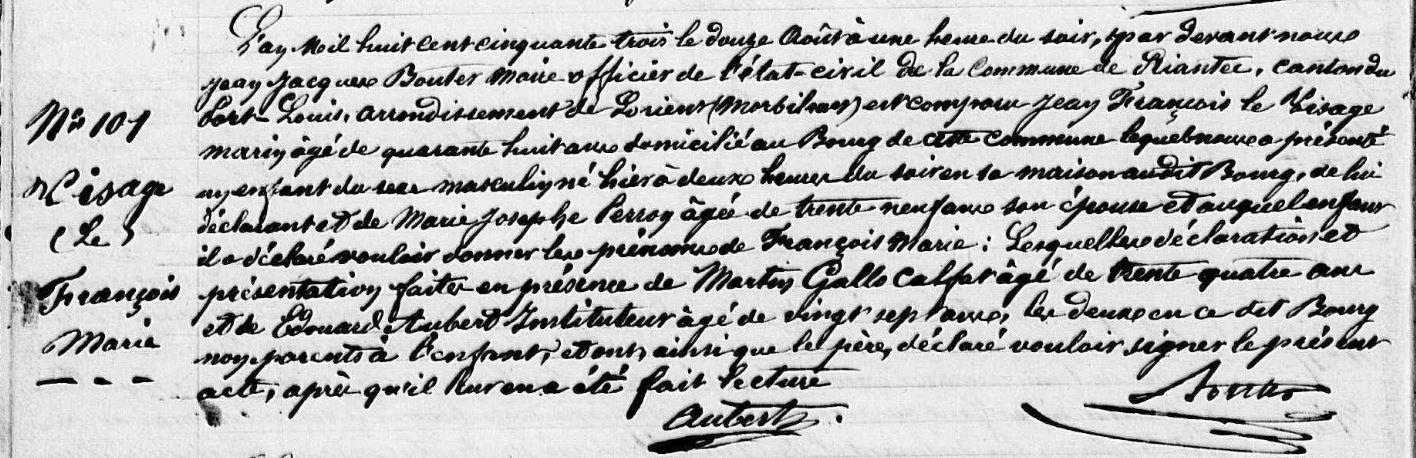 L'an Mil huit cent cinquante trois le douze Août à une heure du soir, par devant nous
Jean Jacques Bouter Maire officier de l'état-civil de la Commune de Riantec, canton du
Port-Louis, arrondissement de Lorient (Morbihan) est comparu Jean François le Visage
marin âgé de quarante huit ans domicilié au Bourg de cette commune lequel nous a présenté
un enfant du sexe masculin né hier à deux heures du soir en sa maison audit Bourg, de lui
déclarant et de Marie Josephe Perron âgée de trente neuf ans son épouse et auquel enfant
il a déclaré vouloir donner les prénoms de François Marie : Lesquelles déclaration et
présentation faites en présence de Martin Gallo Calfat âgé de trente quatre ans
et de Edouard Aubert Instituteur âgé de vingt sept ans, les deux en ce dit Bourg
non parents à l'enfant, et ont, ainsi que le père, déclaré vouloir signer le présent
acte, après qu'il leur en a été fait lecture
Nos 101
Visage
(Le)
François
Marie
Aubert